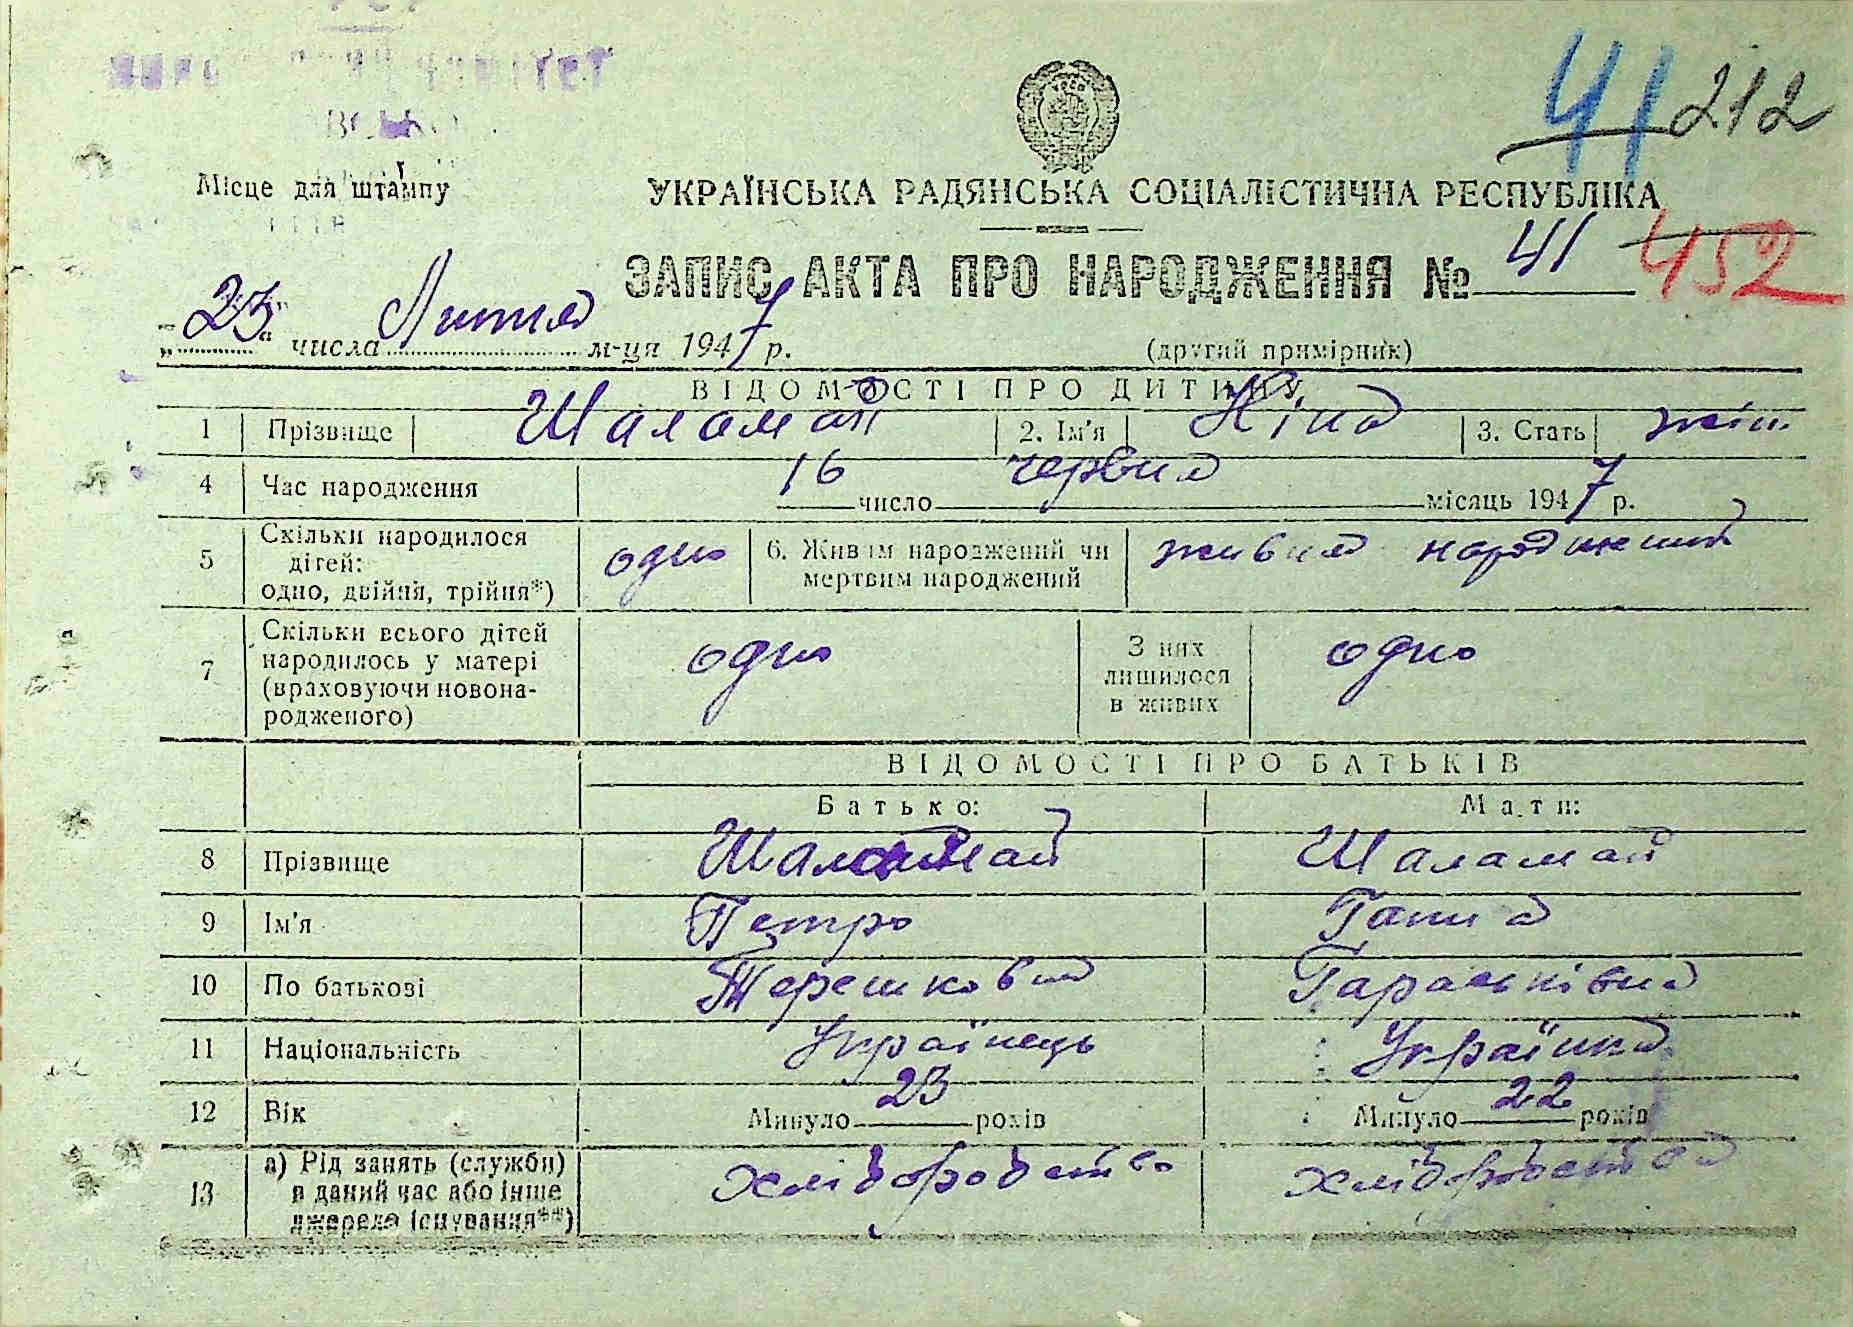 41 212
Місце для штампу
УКРАЇНСЬКА РАДЯНСЬКА СОЦІАЛІСТИЧНА РЕСПУБЛІКА
ЗАПИС АКТА ПРО НАРОДЖЕННЯ № 41 452
„23“ числа м-ця 1947 р. (другий примірник)
ВІДОМОСТІ ПРО ДИТИНУ
1 Прізвище Шаламай 2. Ім'я Ніна 3. Стать жін
4 Час народження 16 число червня місяць 1947 р.
5 Скільки народилося дітей: одно, двійня, трійня*) одно 6. Живим народжений чи мертвим народжений живим народжений
7 Скільки всього дітей народилось у матері (враховуючи новонародженого) одно З них лишилося в живих одно
ВІДОМОСТІ ПРО БАТЬКІВ
Батько: Мати:
8 Прізвище Шаламай Шаламай
9 Ім'я Петро Ганна
10 По батькові Терешкович Гараськівна
11 Національність Українець Українка
12 Вік Минуло 23 років Минуло 22 років
13 а) Рід занять (служби) в даний час або інше джерело існування**) хліборобство хліборобство